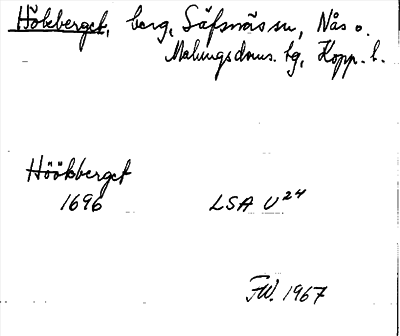 Hökberget, berg, Säfsnäs sn, Nås o.
Malungs dms. hg, Kopp. l.
Höökberget
1696 LSA U24
FW. 1967